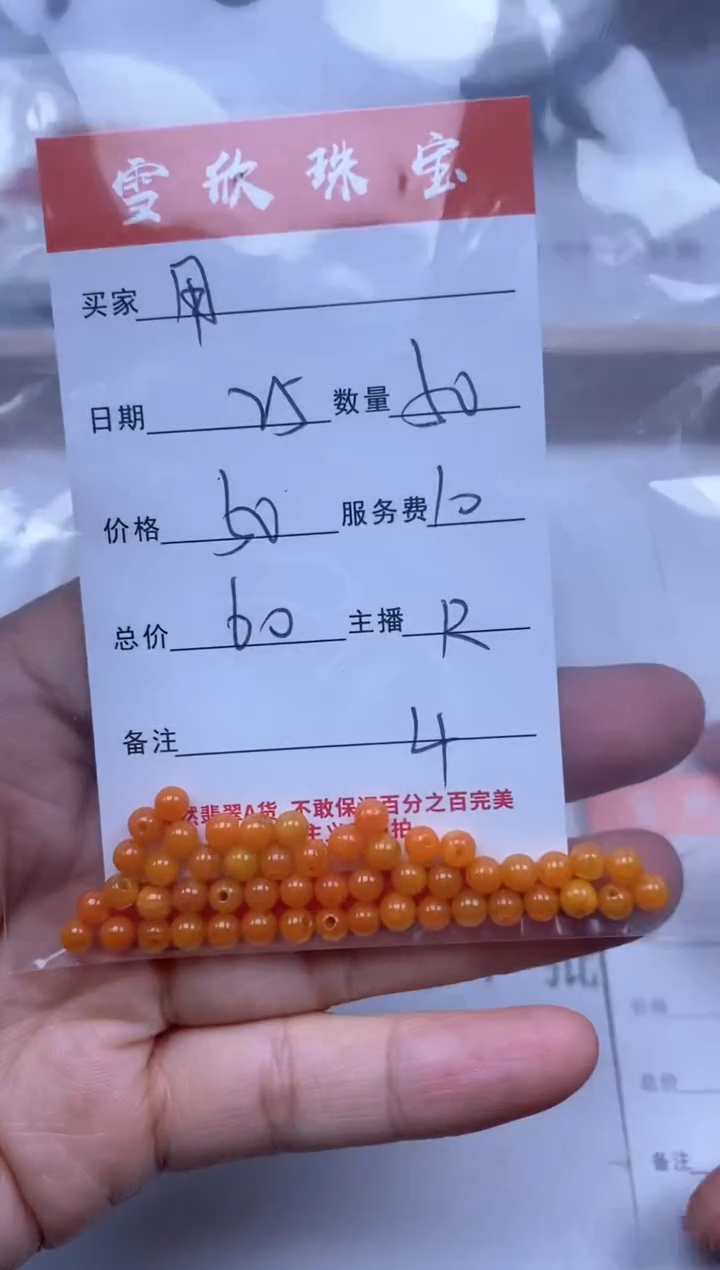 雪欣珠宝
买家 用
日期 25 数量 50
价格 50 服务费 10
总价 60 主播 R
备注 4
然翡翠A货 不敢保证百分之百完美
主义 护
价格
总价
备注